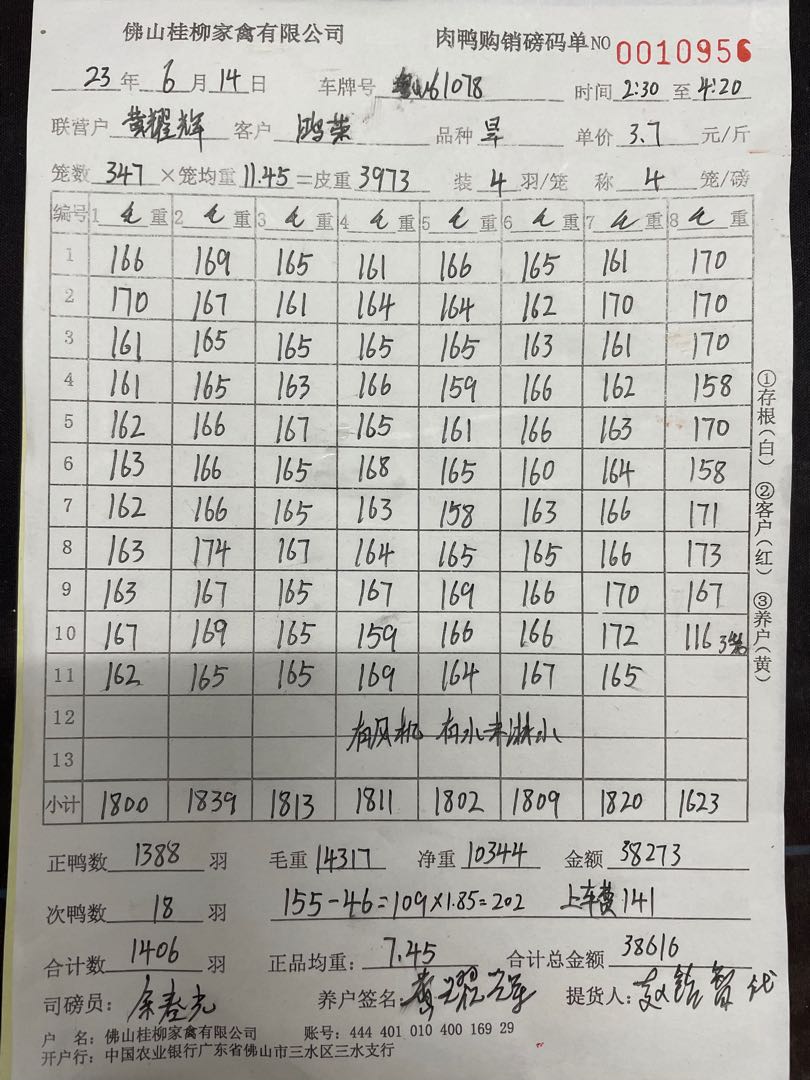 佛山桂柳家禽有限公司 肉鸭购销磅码单 NO 0010956
23 年 6 月 14 日 车牌号 粤W61078 时间 2:30 至 4:20
联营户 黄耀辉 客户 鸿荣 品种 旱 单价 3.7 元/斤
笼数 347 ×笼均重 11.45 =皮重 3973 装 4 羽/笼 称 4 笼/磅
编号 1 毛 重 2 毛 重 3 毛 重 4 毛 重 5 毛 重 6 毛 重 7 毛 重 8 毛 重
1 166 169 165 161 166 165 161 170
2 170 167 161 164 164 162 170 170
3 161 165 165 165 165 163 161 170
4 161 165 163 166 159 166 162 158
5 162 166 167 165 161 166 163 170
6 163 166 165 168 165 160 164 158
7 162 166 165 163 158 163 166 171
8 163 174 167 164 165 165 166 173
9 163 167 165 167 169 166 170 167
10 167 169 165 159 166 166 172 116 3笼
11 162 165 165 169 164 167 165
12 有风机 有水未淋水
13
小计 1800 1839 1813 1811 1802 1809 1820 1623
①存根(白) ②客户(红) ③养户(黄)
正鸭数 1388 羽 毛重 14317 净重 10344 金额 38273
次鸭数 18 羽 155-46=109×1.85=202 上车费 141
合计数 1406 羽 正品均重: 7.45 合计总金额 38616
司磅员: 养户签名: 黄耀辉 提货人: 代
户 名: 佛山桂柳家禽有限公司 账号: 444 401 010 400 169 29
开户行: 中国农业银行广东省佛山市三水区三水支行